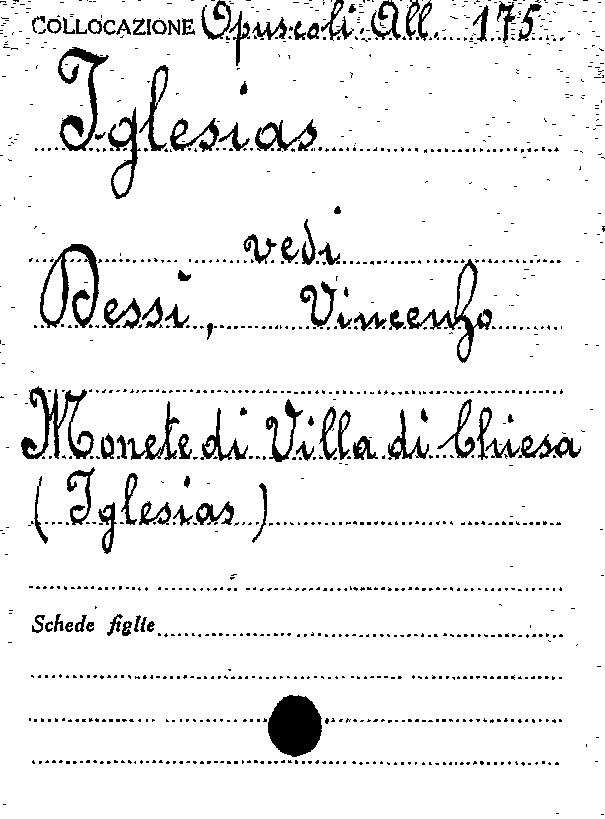 COLLOCAZIONE Opuscoli. All. 175
Iglesias
vedi
Dessi, Vincenzo
Monete di Villa di Chiesa
(Iglesias)
Schede figlie